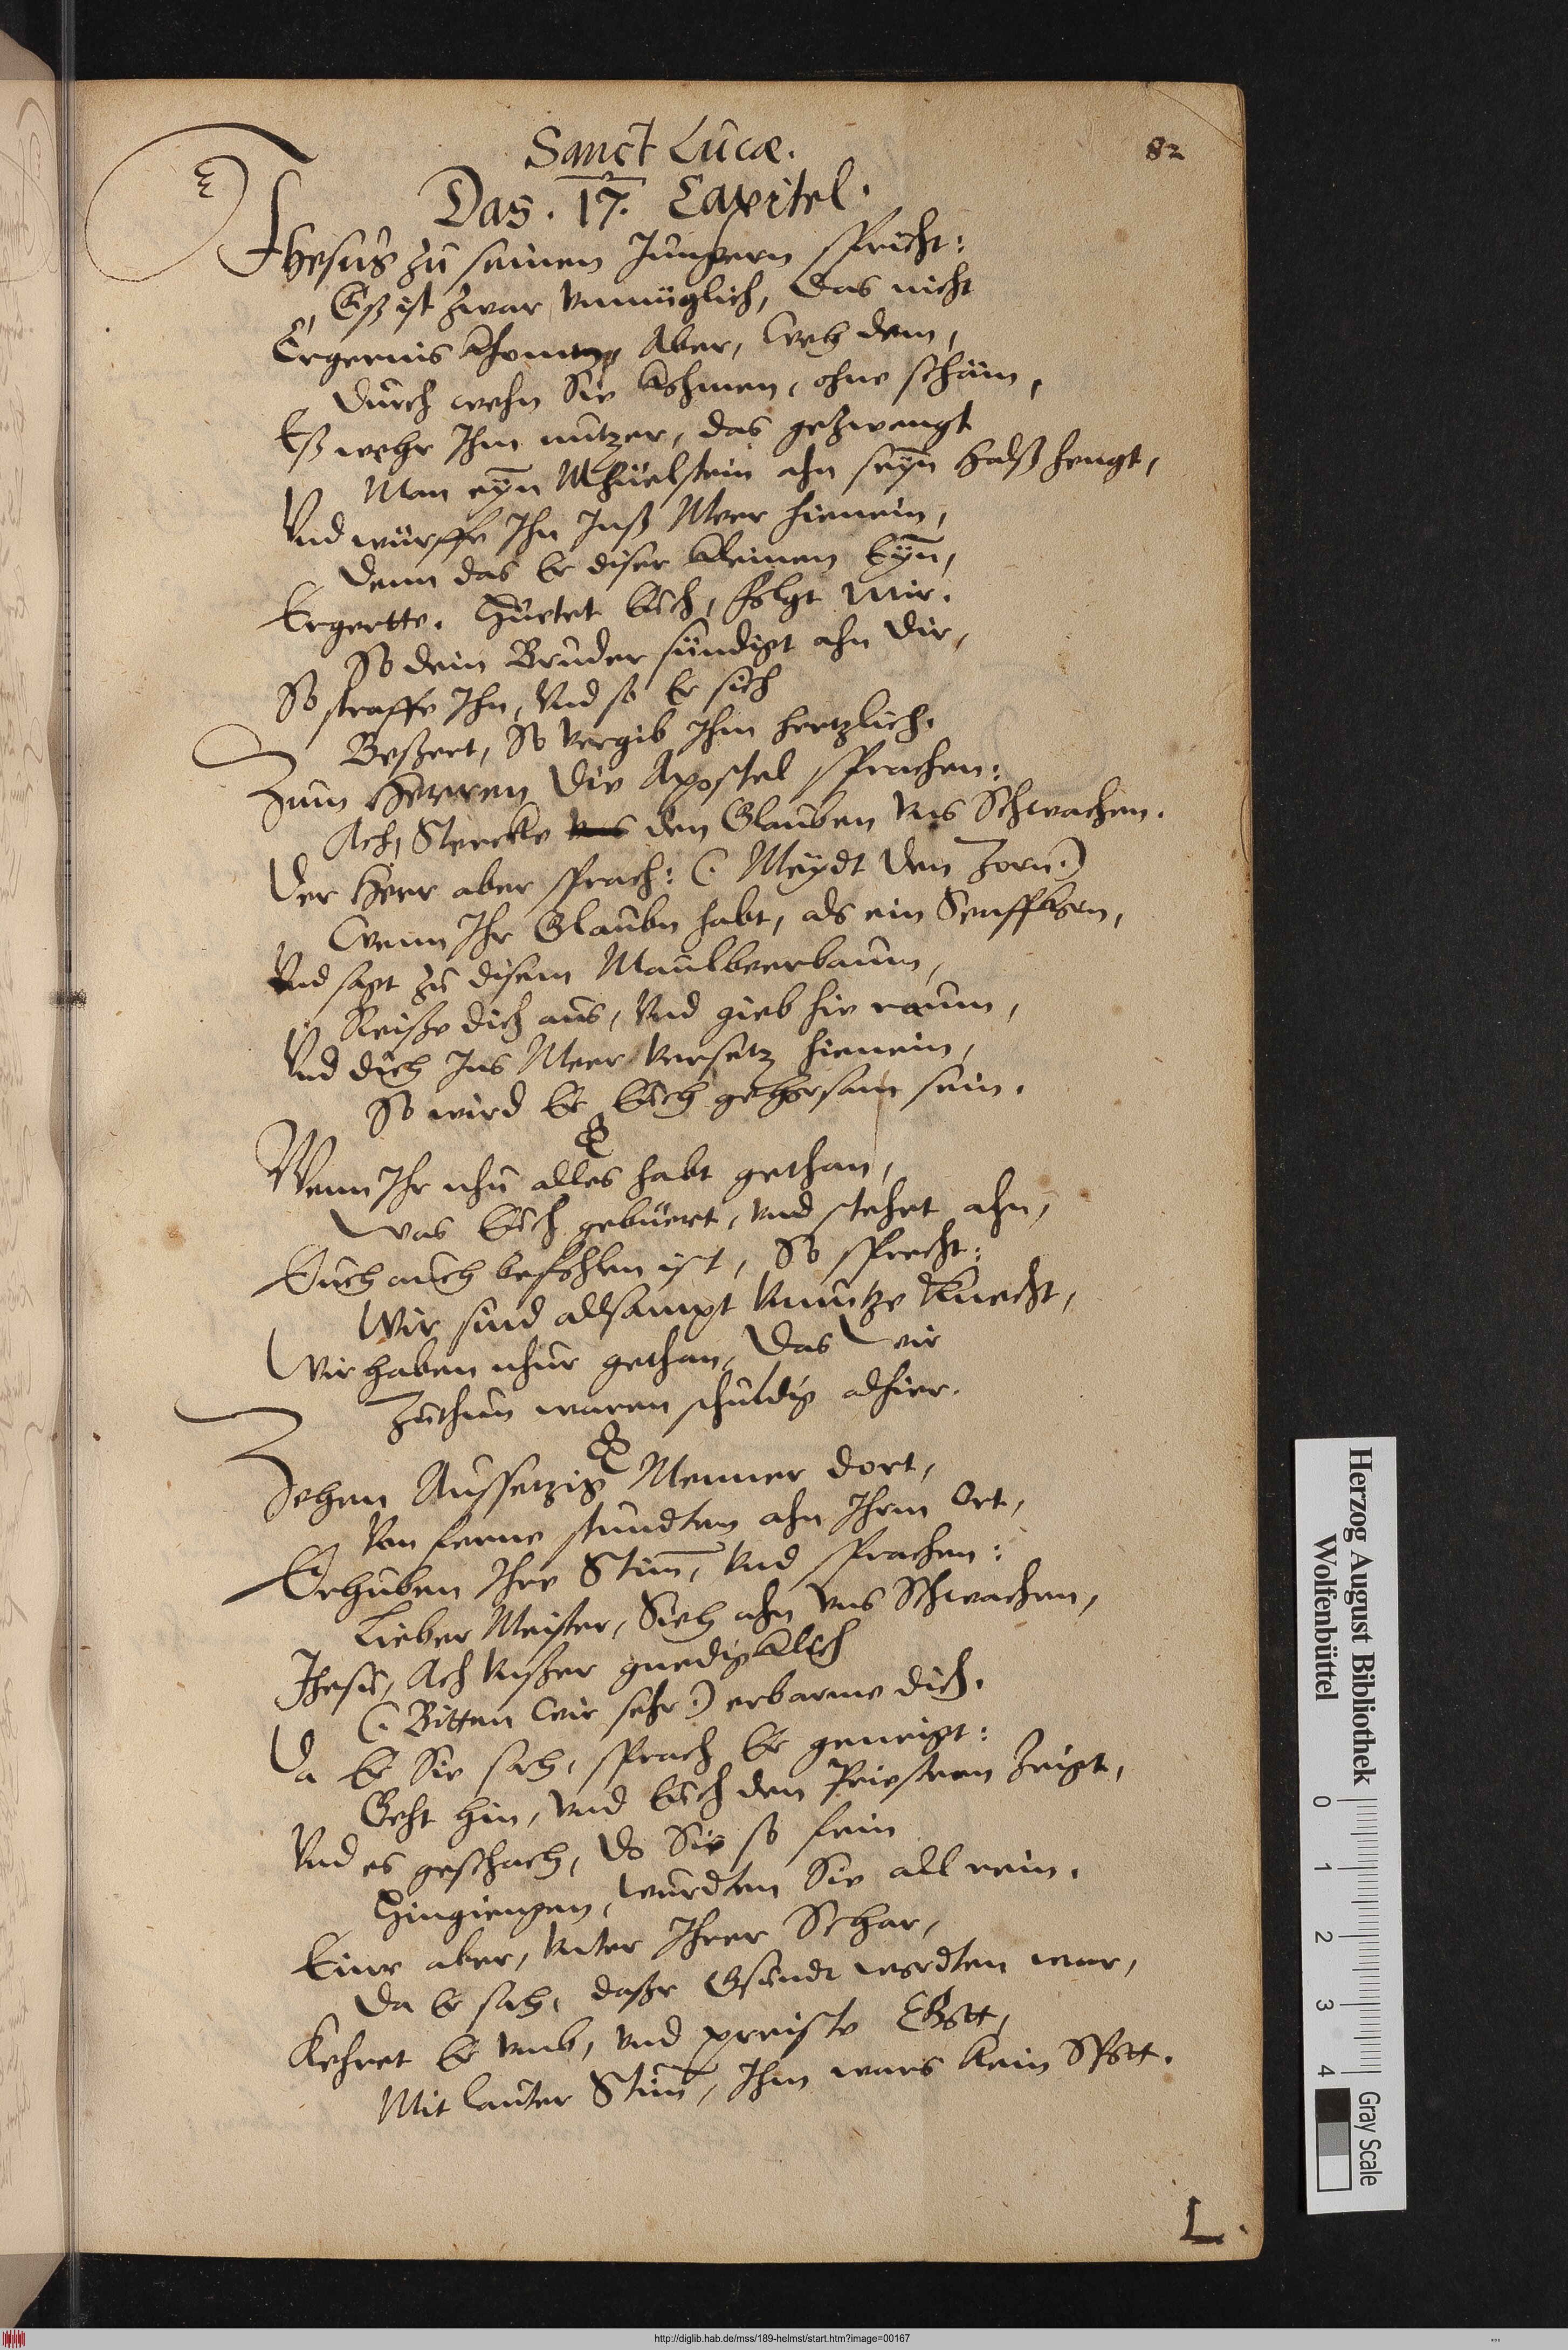 82
Sanct Lucæ.
Das. 17. Capitel.
Jhesus zu seinen Jungern spricht:
Eß ist zwar vnmüglich, das nicht
Ergernis khomen, Aber, weh dem,
Durch wehn Sie kohmen, ohne scham,
Eß wehr Ihm nutzer, das gezwengt
Man eyn Mhüelstein ahn seyn halß hengt,
Vnd würffe Ihn Inß Meer hienein,
Denn das Er diser kleinen Eyn,
Ergertte. Hüetet Euch, folgt Mir.
So dein Bruder sündigt ahn dir,
So straffe Ihn, Vnd so Er sich
Beßert, So vergib Ihm hertzlich.
Zum Herren die Apostel sprachen:
Ach, Stercke vns den Glauben vns Schwachen.
Der Herr aber sprach: (. Meydt den Zorn .)
Wenn Ihr Glaubn habt, als ein Senffkorn,
Vnd sagt zu disem Maulbeerbaum,
Reiße dich aus, Vnd gieb hie raum,
Vnd dich Ins Meer versetz hienein,
So wird Er Euch gehorsam sein.
Wenn Ihr nhu alles habt gethan,
Was Euch gebüert, vnd stehet ahn,
Euch auch befohlen ist, So sprecht:
Wir sind allsampt vnnutze knecht,
Wir haben nhur gethan, das Wir
Zuthun waren schuldig alhier.
Zehen Aussetzig Menner dort,
Von ferne stundten ahn Ihrm Ort,
Erhuben Ihre Stim̄, Vnd sprachen:
Lieber Meister, Sieh ahn vns Schwachen,
Jhesu, Ach vnßer gnedigklich
(. Bitten Wir sehr .) erbarme dich.
Da Er Sie sah, sprach Er geneigt:
Geht hin, vnd Euch den Priestern Zeigt,
Vnd es geschach, do Sie so fein
Hingiengen, wurdten Sie all rein.
Einr aber, vnter Ihrer Schar,
Da Er sah, daßr Gsundt wordten war,
Kehret Er vmb, vnd preiste Gott,
Mit lauter Stim̄, Ihm wars kein Spott.
L.
Herzog August Bibliothek
Wolfenbüttel
0 1 2 3 4
Gray Scale
http://diglib.hab.de/mss/189-helmst/start.htm?image=00167